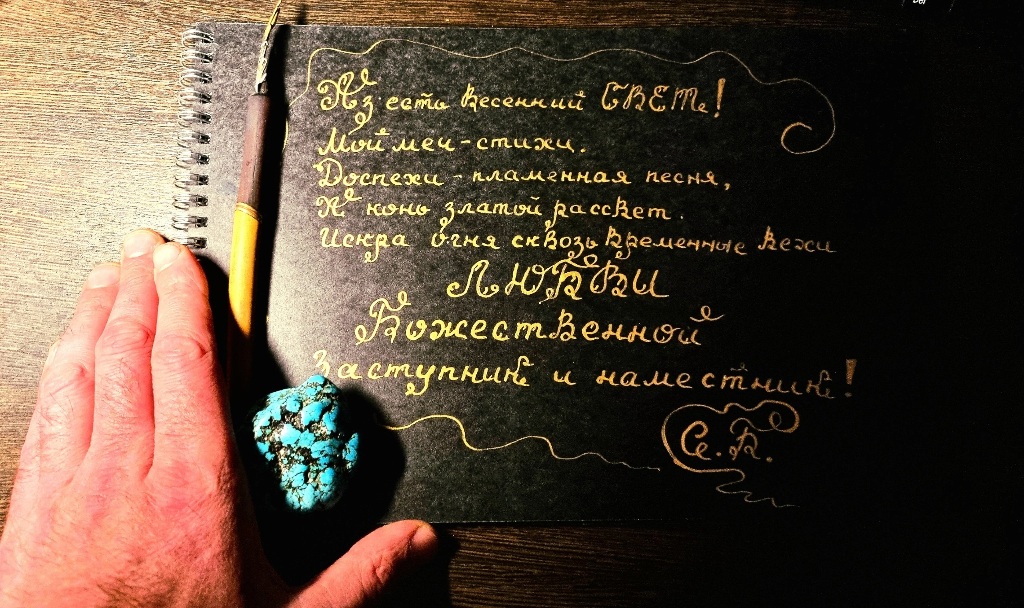 Аз есть весенний СВЕТ!
Мой меч - стихи.
Доспехи - пламенная песня,
А конь златой рассвет.
Искра огня сквозь временные вехи
ЛЮБВИ
Божественной
Заступник и наместник!
С.В.